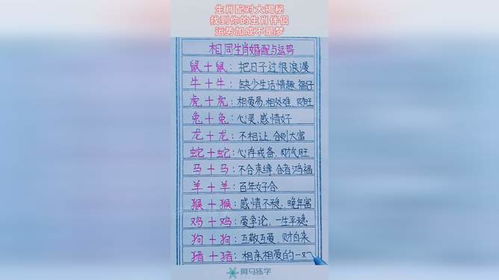 生肖配对大揭秘
找到你的生肖伴侣
运势加成不是梦
相同生肖婚配与运势
鼠+鼠：把日子过很浪漫
牛+牛：缺少生活情趣
虎+虎：相爱易，相处难，财旺
兔+兔：心灵，感情好
龙+龙：不相让，合则大富
蛇+蛇：心存戒备，财气旺
马+马：不合束缚，合有鸿福
羊+羊：百年好合
猴+猴：感情不稳，晚年富
鸡+鸡：爱争论，一生平稳
狗+狗：互敬互爱，财自来
猪+猪：相亲相爱的一对